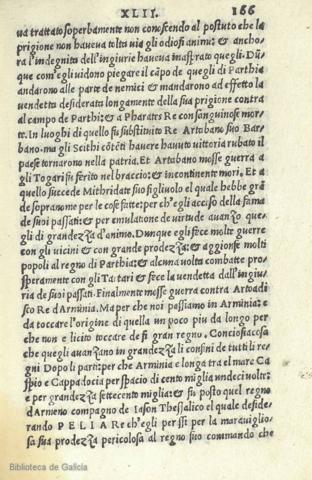 XLII. 166
va trattato soperbamente non conoscendo al postuto che la
prigione non haveva tolta via gli odiosi animi: & ancho=
ra l'indegnita dell'ingiurie haveva inastrato quegli. Dũ=
que com'egli vidono piegare il cãpo de quegli di Parthia
andarono alle parte de nemici & mandarono ad effetto la
vendetta desiderata longamente della sua prigione contra
al campo de Parthi: & a Pharates Re con sanguinose mor=
te. In luoghi di quello fu substituito Re Artabano suo Bar=
bano. ma gli Scithi cõtẽti havere havuto vittoria rubato il
paese tornorono nella patria. Et Artabano mosse guerra a
gli Togari fu ferito nel braccio: & incontinenti mori. Et a
quello succede Mithridate suo figliuolo el quale hebbe grã
de sopranome per le cose fatte: per ch'egli acceso della fama
de suoi passati: & per emulatione de virtude avanzo que=
gli di grandezza d'animo. Dunque egli fece molte guerre
con gli vicini & con grande prodezza: & aggionse molti
popoli al regno di Parthia: & alcuna volta combatte pro=
speramente con gli Tattari & fece la vendetta dall'ingiu=
ria de suoi passati. Finalmente mosse guerra contra Artoadi
sco Re d'Arminia. Ma per che noi passiamo in Arminia: e
da toccare l'origine di quella un poco piu da longo per
che non e licito toccare de si gran regno. Conciosiacosa
che quegli avanzano in grandezza li confini de tutti le re=
gni Dopo li parti: per che Arminia e longa tra el mare Ca=
spio e Cappadocia per spacio di cento miglia undeci volti:
e per grandezza settecento miglia: & fu posto quel regno
d'Armeno compagno de Iason Thessalico el quale deside=
rando PELIA Re ch'egli perissi per la maraviglio=
sa sua prodezza pericolosa al regno sito commando che
Biblioteca de Galicia